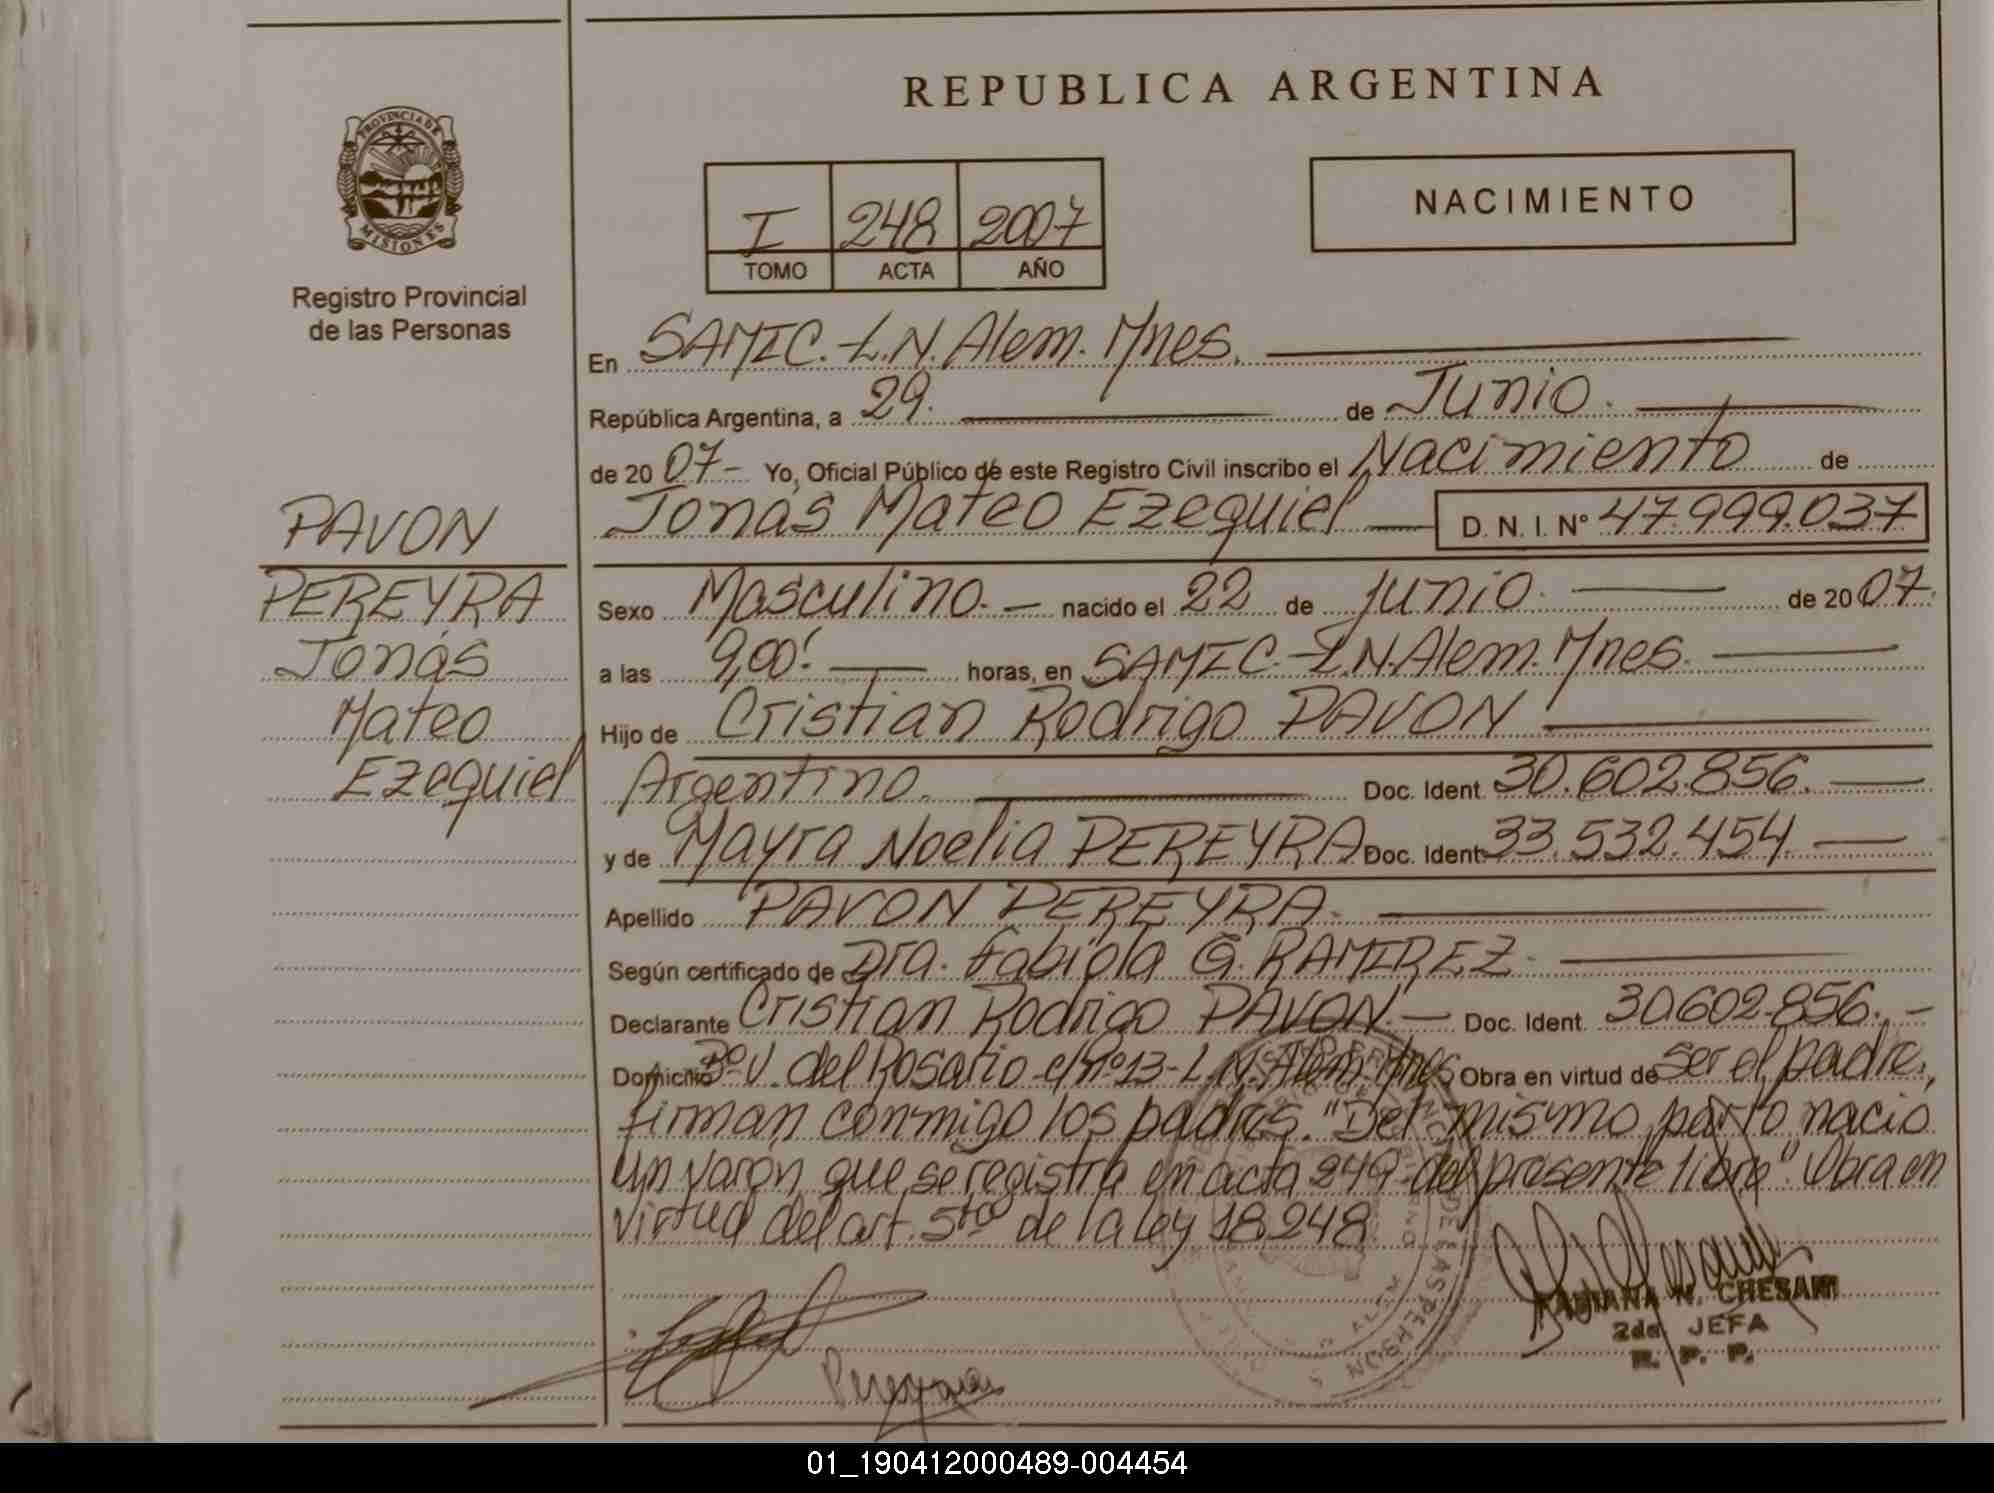 REPUBLICA ARGENTINA
PROVINCIA DE
MISIONES
Registro Provincial
de las Personas
I 248 2007
TOMO ACTA AÑO
NACIMIENTO
En SAMIC.-L.N.Alem. Mnes.
República Argentina, a 29. de Junio.
de 20 07- Yo, Oficial Público de este Registro Civil inscribo el Nacimiento de
Jonás Mateo Ezequiel D. N. I. Nº 47.999.037
PAVON
PEREYRA
Jonás
Mateo
Ezequiel
Sexo Masculino.- nacido el 22 de junio. de 20 07.
a las 9,00'. horas, en SAMIC.-L.N.Alem. Mnes.
Hijo de Cristian Rodrigo PAVON
Argentino. Doc. Ident. 30.602.856.
y de Mayra Noelia PEREYRA Doc. Ident. 33.532.454.
Apellido PAVON PEREYRA.
Según certificado de Dra. Fabiola G. RAMIREZ.
Declarante Cristian Rodrigo PAVON.- Doc. Ident. 30602.856.-
Domicilio Bº V. del Rosario c/nº13-L.N.Alem. Mnes Obra en virtud de ser el padre,
firman conmigo los padres. "Del mismo parto nacio
un varón que se registra en acta 249 del presente libro". Obra en
virtud del art. 5to de la ley 18248.
Pereyra
N. CHESANI
2da. JEFA
R. P. P.
01_190412000489-004454